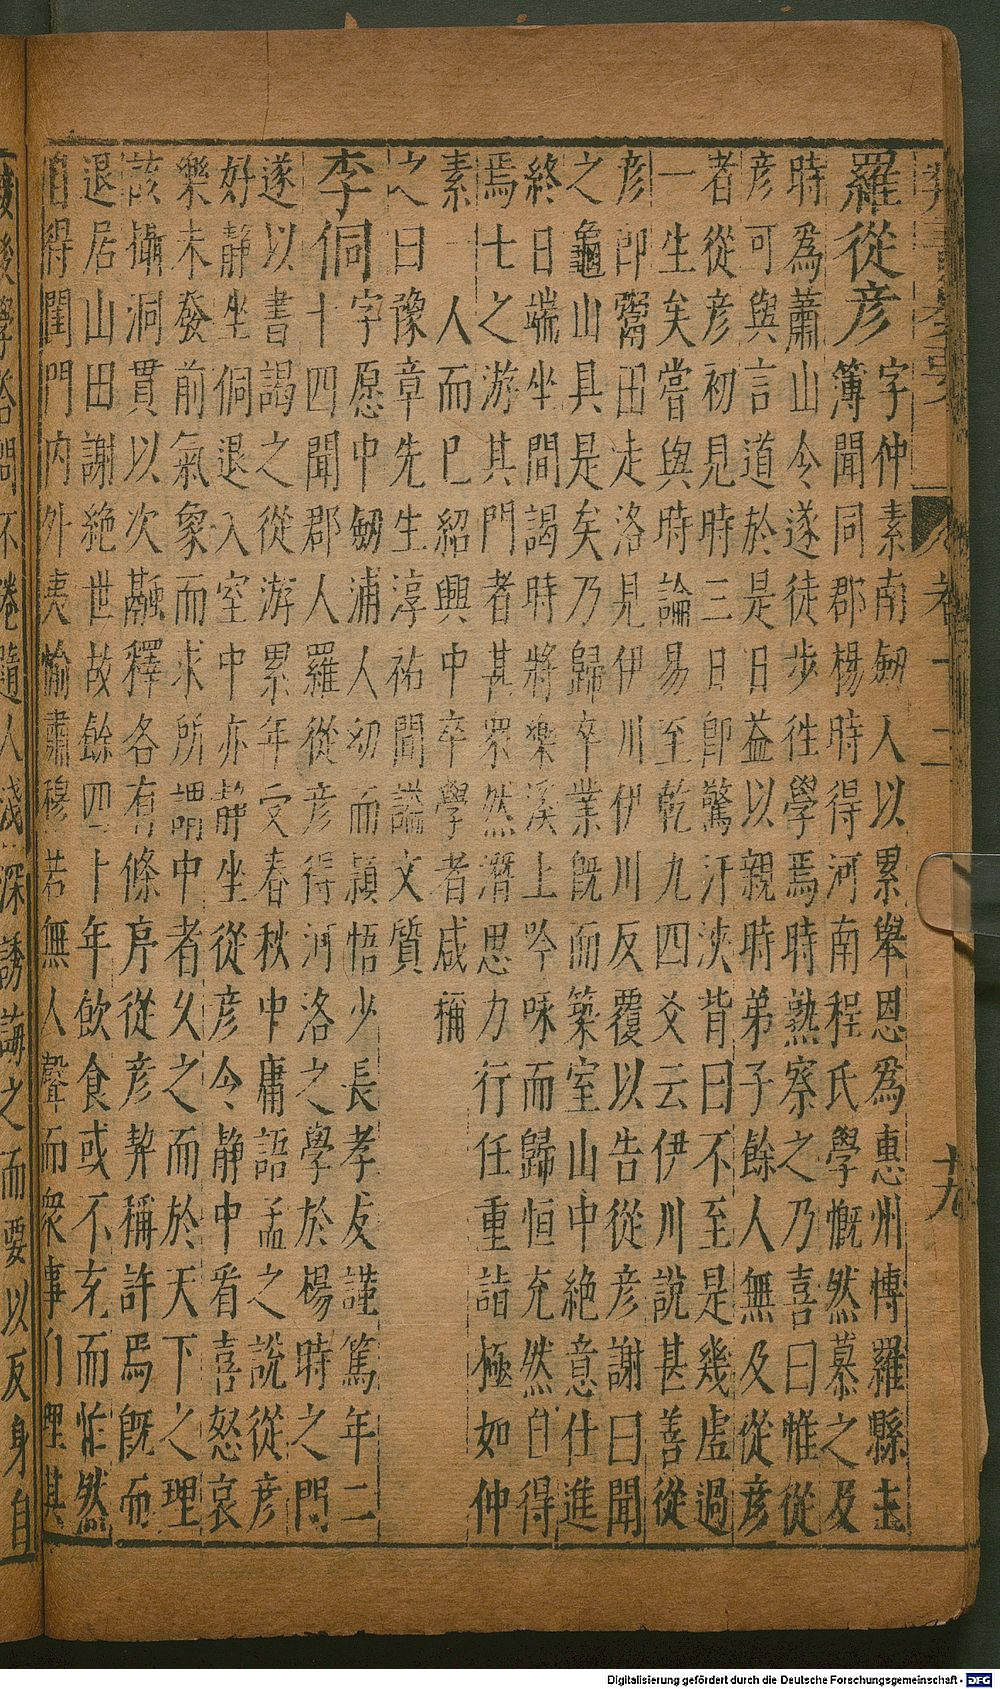 卷十二
十九
羅從彥字仲素南劒人以累舉恩爲惠州博羅縣主
簿聞同郡楊時得河南程氏學慨然慕之及
時爲蕭山令遂徒步徃學焉時熟察之乃喜曰惟從
彥可與言道於是日益以親時弟子餘人無及從彥
者從彥初見時三日卽驚汗浹背曰不至是幾虛過
一生矣嘗與時論易至乾九四爻云伊川說甚善從
彥卽鬻田走洛見伊川伊川反覆以告從彥謝曰聞
之龜山具是矣乃歸卒業旣而築室山中絶意仕進
終日端坐間謁時將樂溪上吟咏而歸恒充然自得
焉七之游其門者甚衆然潛思力行任重詣極如仲
素一人而已紹興中卒學者咸稱
之曰豫章先生淳祐間諡文質
李侗字愿中劒浦人初而頴悟少長孝友謹篤年二
十四聞郡人羅從彥得河洛之學於楊時之門
遂以書謁之從游累年受春秋中庸語孟之說從彥
好靜坐侗退入室中亦靜坐從彥令靜中看喜怒哀
樂未發前氣象而求所謂中者久之而於天下之理
該攝洞貫以次融釋各有條序從彥亟稱許焉旣而
退居山田謝絶世故餘四十年飲食或不充而怡然
自得閨門內外夷愉肅穆若無人聲而衆事自理其
接後學答問不倦隨人淺深誘誨之而要以反身自
Digitalisierung gefördert durch die Deutsche Forschungsgemeinschaft - DFG